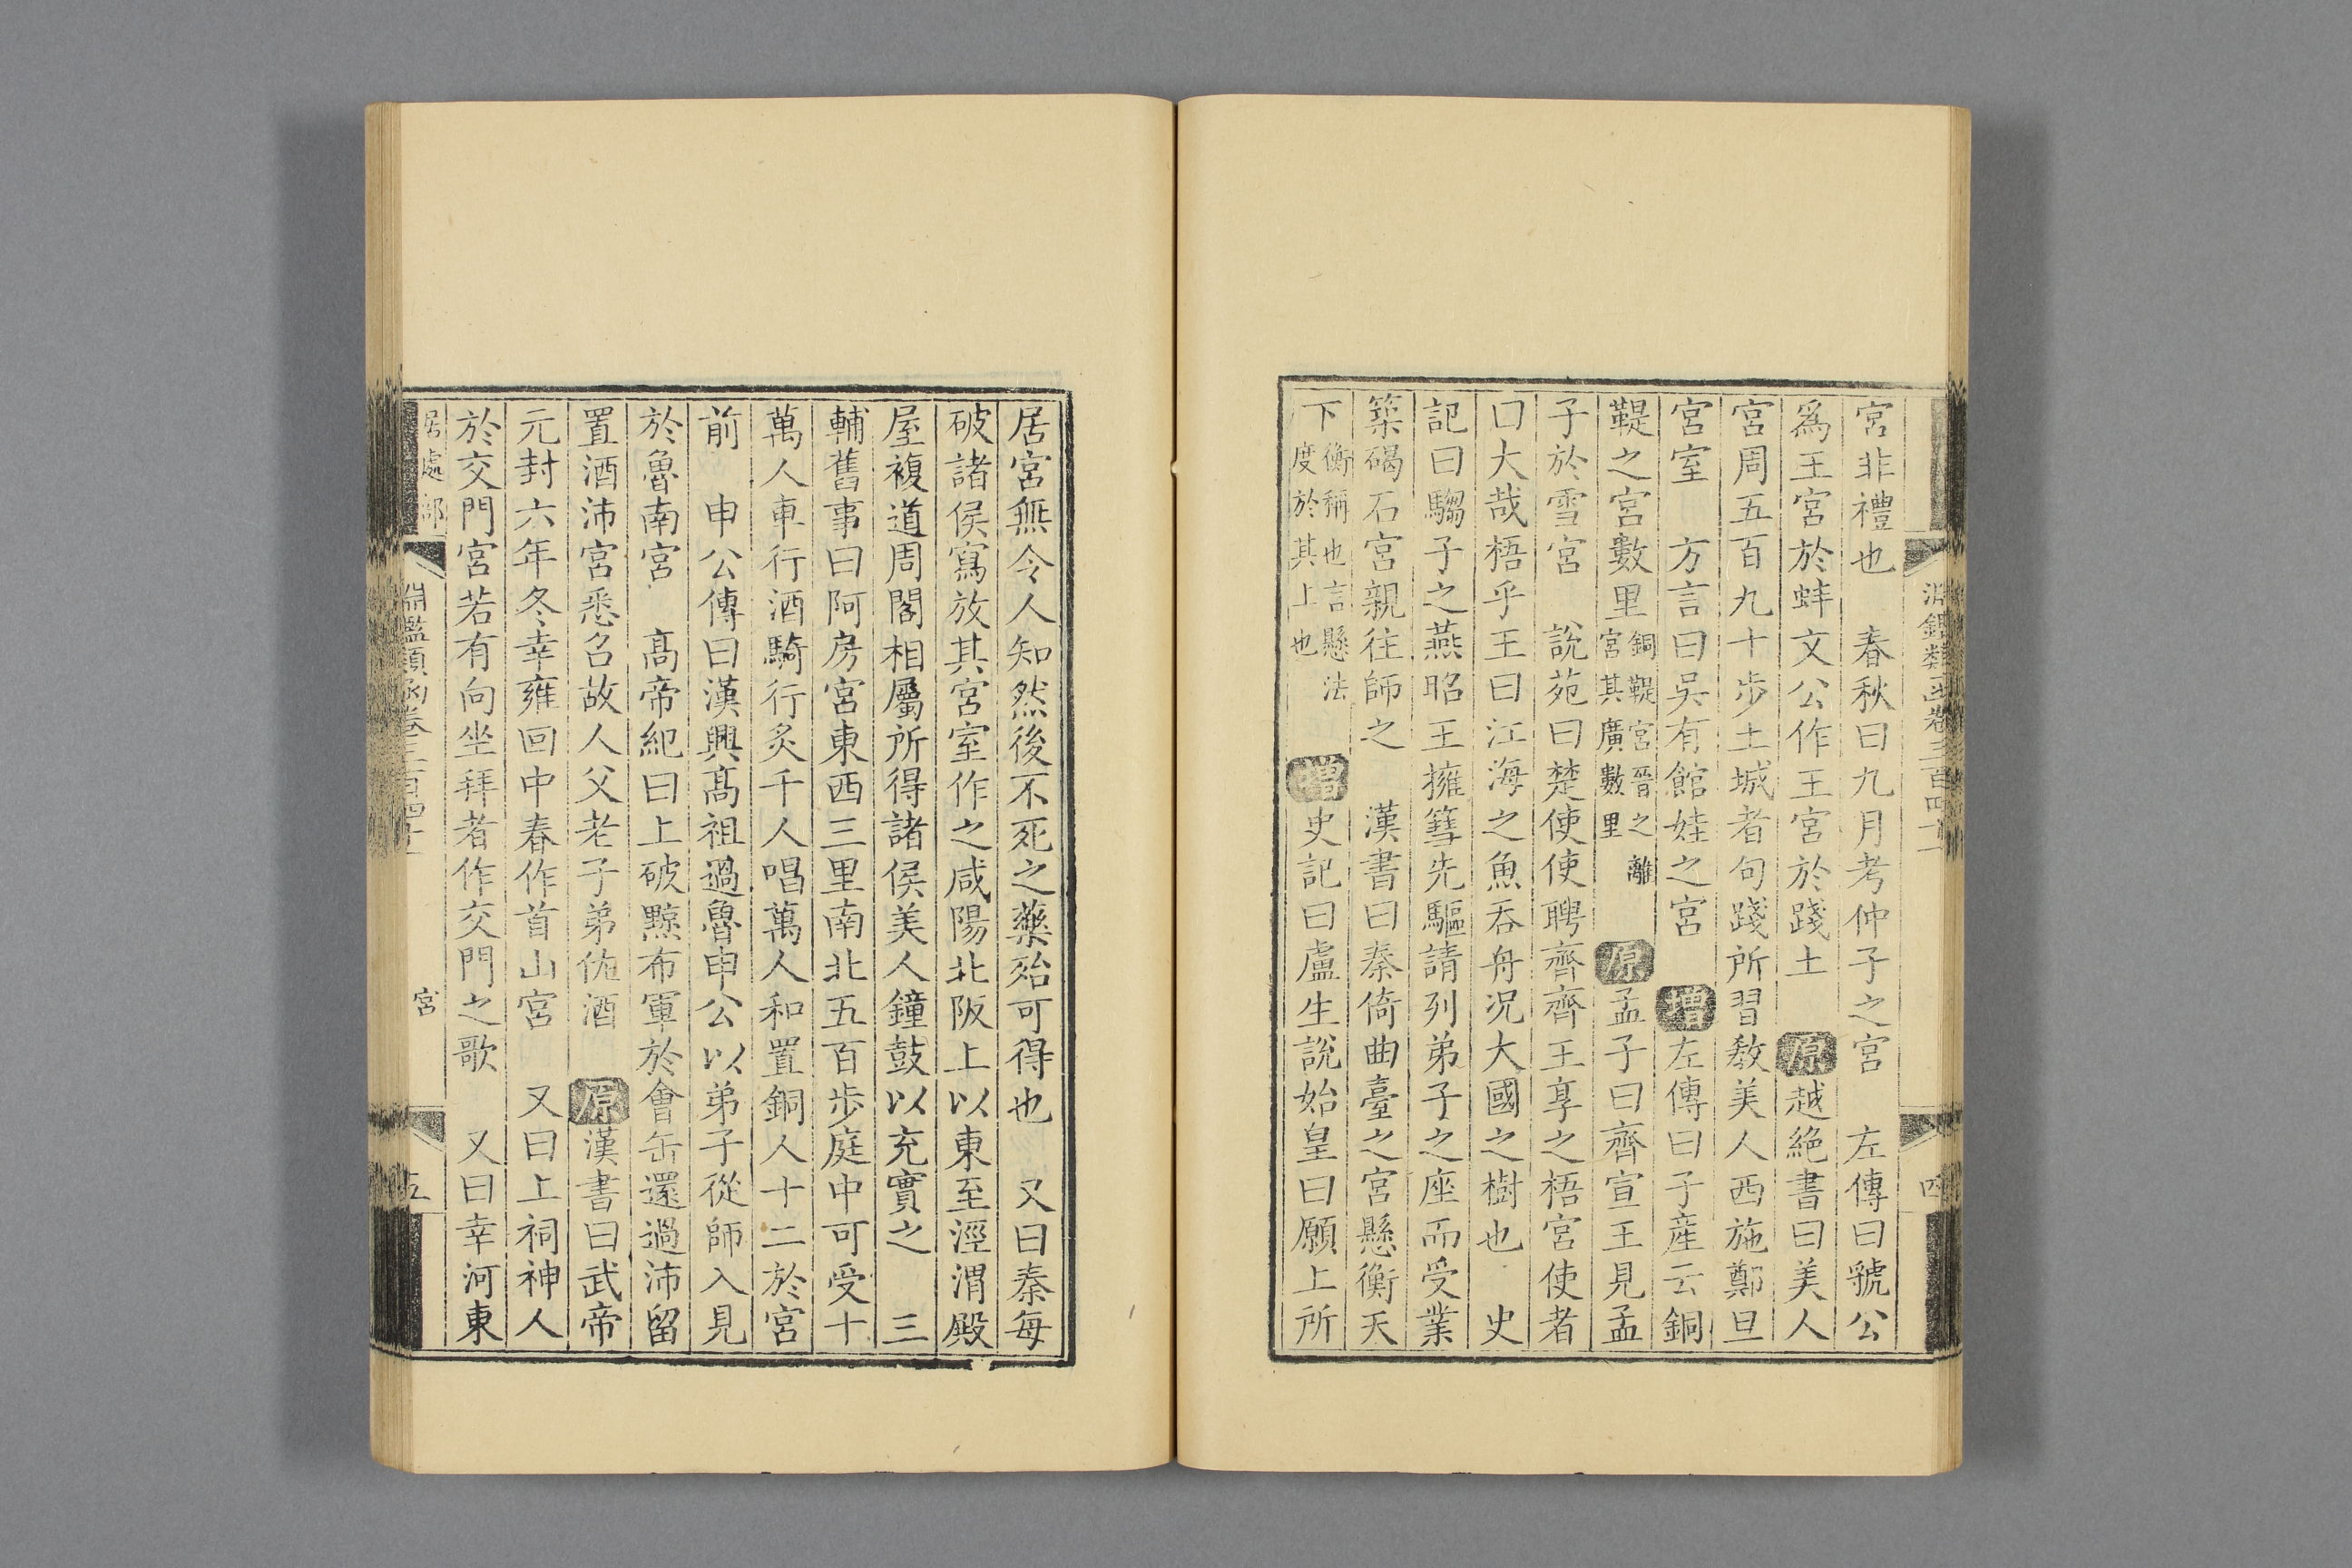 宮非禮也　春秋曰九月考仲子之宮　左傳曰虢公
爲王宮於蚌文公作王宮於踐土　原越絶書曰美人
宮周五百九十步土城者句踐所習敎美人西施鄭旦
宮室　方言曰吳有館娃之宮　增左傳曰子産云銅
鞮之宮數里銅鞮宮晉之離宮其廣數里　原孟子曰齊宣王見孟
子於雪宮　說苑曰楚使使聘齊齊王享之梧宮使者
口大哉梧乎王曰江海之魚吞舟况大國之樹也　史
記曰騶子之燕昭王擁篲先驅請列弟子之座而受業
築碣石宮親往師之　漢書曰秦倚曲臺之宮懸衡天
下衡稱也言懸法度於其上也　增史記曰盧生說始皇曰願上所
居宮無令人知然後不死之藥殆可得也　又曰秦每
破諸侯寫放其宮室作之咸陽北阪上以東至涇渭殿
屋複道周閣相屬所得諸侯美人鐘鼓以充實之　三
輔舊事曰阿房宮東西三里南北五百步庭中可受十
萬人車行酒騎行炙千人唱萬人和置銅人十二於宮
前　申公傳曰漢興髙祖過魯申公以弟子從師入見
於魯南宮　髙帝紀曰上破黥布軍於會缶還過沛留
置酒沛宮悉召故人父老子弟侑酒　原漢書曰武帝
元封六年冬幸雍回中春作首山宮　又曰上祠神人
於交門宮若有向坐拜者作交門之歌　又曰幸河東
居處部　淵鑑類函卷三百四十一　宮　五